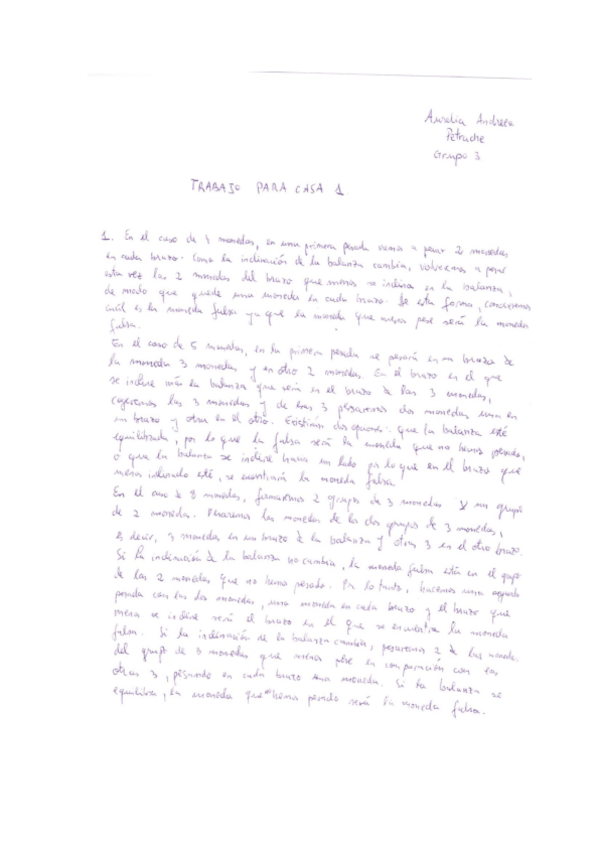 Aurelia Andreea
Petrache
Grupo 3
TRABAJO PARA CASA 1
1. En el caso de 4 monedas, en una primera pesada vamos a pesar 2 monedas
en cada brazo. Como la inclinación de la balanza cambia, volvemos a pesar
esta vez las 2 monedas del brazo que menos se inclina en la balanza,
de modo que quede una moneda en cada brazo. De esta forma, conoceremos
cuál es la moneda falsa ya que la moneda que menos pese será la moneda
falsa.
En el caso de 5 monedas, en la primera pesada se pesará en un brazo de
la moneda 3 monedas y en otro 2 monedas. En el brazo en el que
se incline más la balanza que será en el brazo de las 3 monedas,
cogeremos las 3 monedas y de esas 3 pesaremos dos monedas una en
un brazo y otra en el otro. Existirán dos opciones: que la balanza esté
equilibrada, por lo que la falsa será la moneda que no hemos pesado,
o que la balanza se incline hacia un lado por lo que en el brazo que
menos inclinado esté, se encontrará la moneda falsa.
En el caso de 8 monedas, formaremos 2 grupos de 3 monedas y un grupo
de 2 monedas. Pesaremos las monedas de los dos grupos de 3 monedas,
es decir, 3 monedas en un brazo de la balanza y otras 3 en el otro brazo.
Si la inclinación de la balanza no cambia, la moneda falsa está en el grupo
de las 2 monedas que no hemos pesado. Por lo tanto, hacemos una segunda
pesada con las dos monedas, una moneda en cada brazo y el brazo que
menos se incline será el brazo en el que se encuentra la moneda
falsa. Si la inclinación de la balanza cambia, pesaremos 2 de las monedas
del grupo de 3 monedas que menos pese en comparación con las
otras 3, pesando en cada brazo una moneda. Si la balanza se
equilibra, la moneda que no hemos pesado será la moneda falsa.